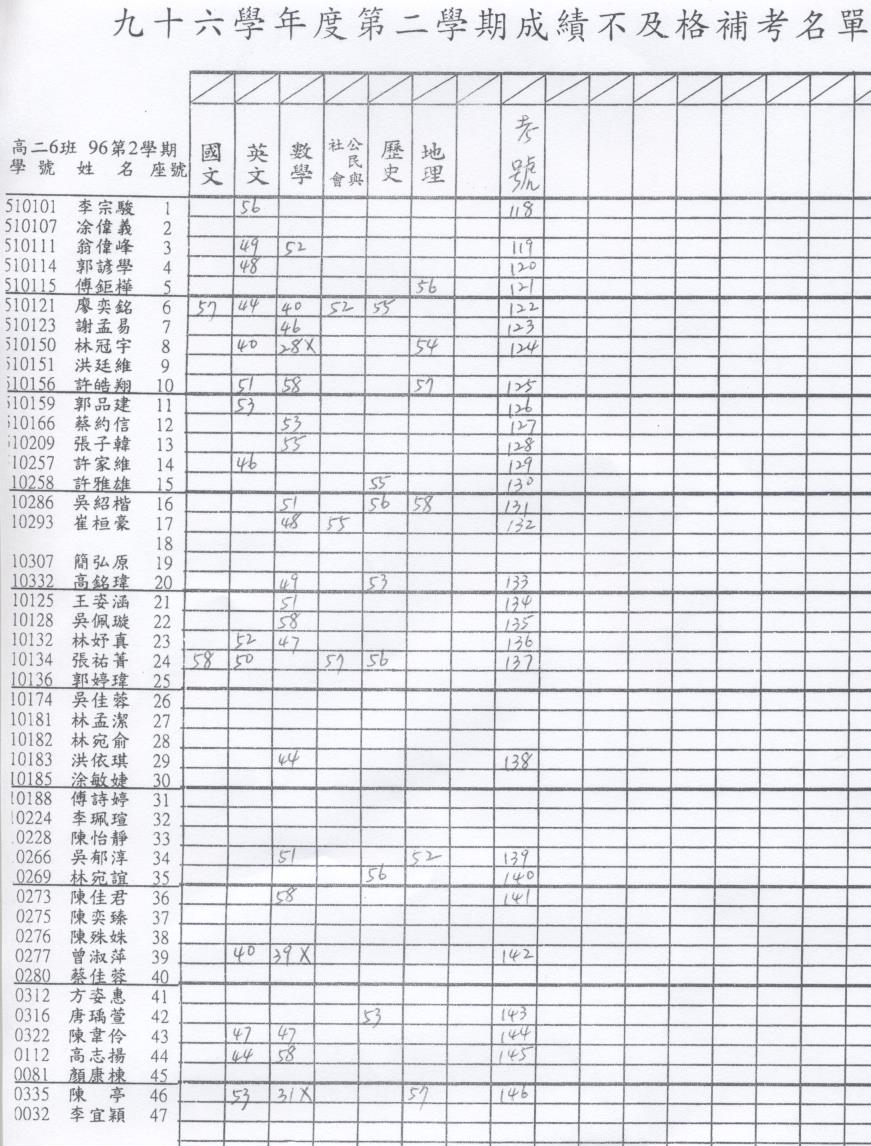 九十六學年度第二學期成績不及格補考名單
高二6班 96第2學期
學號 姓名 座號 國文 英文 數學 公民與社會 歷史 地理 考號
510101 李宗駿 1 56 118
510107 凃偉義 2
510111 翁偉峰 3 49 52 119
510114 郭諺學 4 48 120
510115 傅鉅樺 5 56 121
510121 廖奕銘 6 57 44 40 52 55 122
510123 謝孟易 7 46 123
510150 林冠宇 8 40 28X 54 124
510151 洪廷維 9
510156 許皓翔 10 51 58 57 125
510159 郭品建 11 53 126
510166 蔡約信 12 53 127
10209 張子韓 13 55 128
10257 許家維 14 46 129
10258 許雅雄 15 55 130
10286 吳紹楷 16 51 56 58 131
10293 崔桓豪 17 48 55 132
18
10307 簡弘原 19
10332 高銘瑋 20 49 53 133
10125 王姿涵 21 51 134
10128 吳佩璇 22 58 135
10132 林妤真 23 52 47 136
10134 張祐菁 24 58 50 57 56 137
10136 郭婷瑋 25
10174 吳佳蓉 26
10181 林孟潔 27
10182 林宛俞 28
10183 洪依琪 29 44 138
10185 涂敏婕 30
10188 傅詩婷 31
0224 李珮瑄 32
0228 陳怡靜 33
0266 吳郁淳 34 51 52 139
0269 林宛誼 35 56 140
0273 陳佳君 36 58 141
0275 陳奕臻 37
0276 陳殊姝 38
0277 曾淑萍 39 40 39X 142
0280 蔡佳蓉 40
0312 方姿惠 41
0316 唐瑀萱 42 53 143
0322 陳韋伶 43 47 47 144
0112 高志揚 44 44 58 145
0081 顏康棟 45
0335 陳亭 46 53 31X 57 146
0032 李宜穎 47